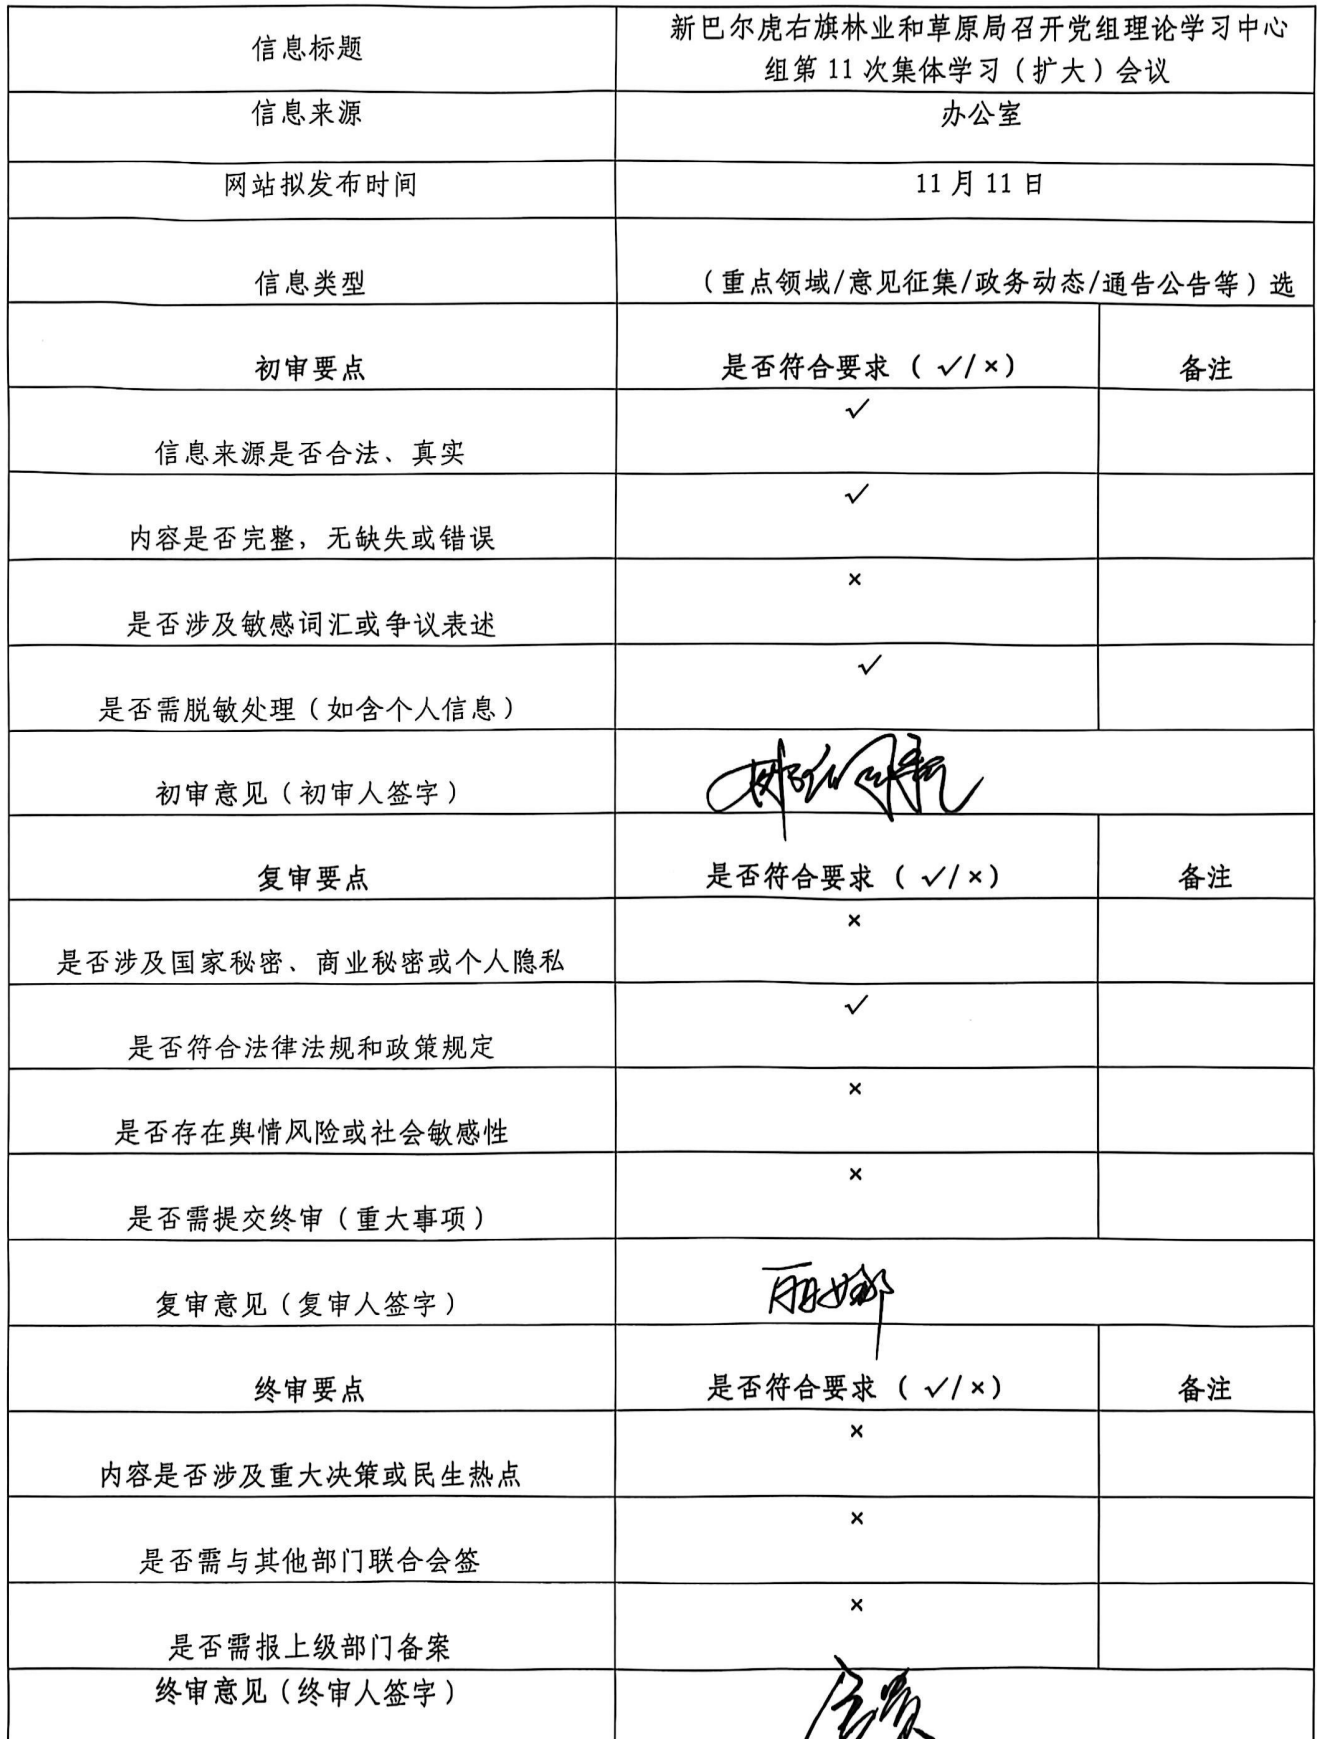 信息标题
新巴尔虎右旗林业和草原局召开党组理论学习中心
组第 11 次集体学习（扩大）会议
信息来源
办公室
网站拟发布时间
11 月 11 日
信息类型
（重点领域/意见征集/政务动态/通告公告等）选
初审要点
是否符合要求（ √/ ×）
备注
信息来源是否合法、真实
√
内容是否完整，无缺失或错误
√
是否涉及敏感词汇或争议表述
×
是否需脱敏处理（如含个人信息）
√
初审意见（初审人签字）
复审要点
是否符合要求（ √/ ×）
备注
是否涉及国家秘密、商业秘密或个人隐私
×
是否符合法律法规和政策规定
√
是否存在舆情风险或社会敏感性
×
是否需提交终审（重大事项）
×
复审意见（复审人签字）
丽娜
终审要点
是否符合要求（ √/ ×）
备注
内容是否涉及重大决策或民生热点
×
是否需与其他部门联合会签
×
是否需报上级部门备案
×
终审意见（终审人签字）